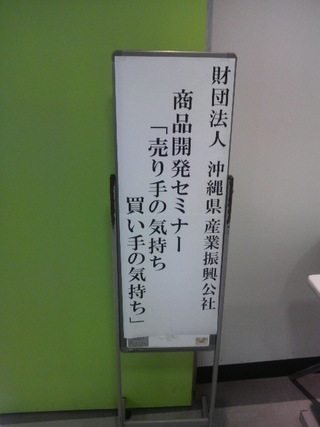 財団法人 沖縄県産業振興公社
商品開発セミナー
「売り手の気持ち
買い手の気持ち」